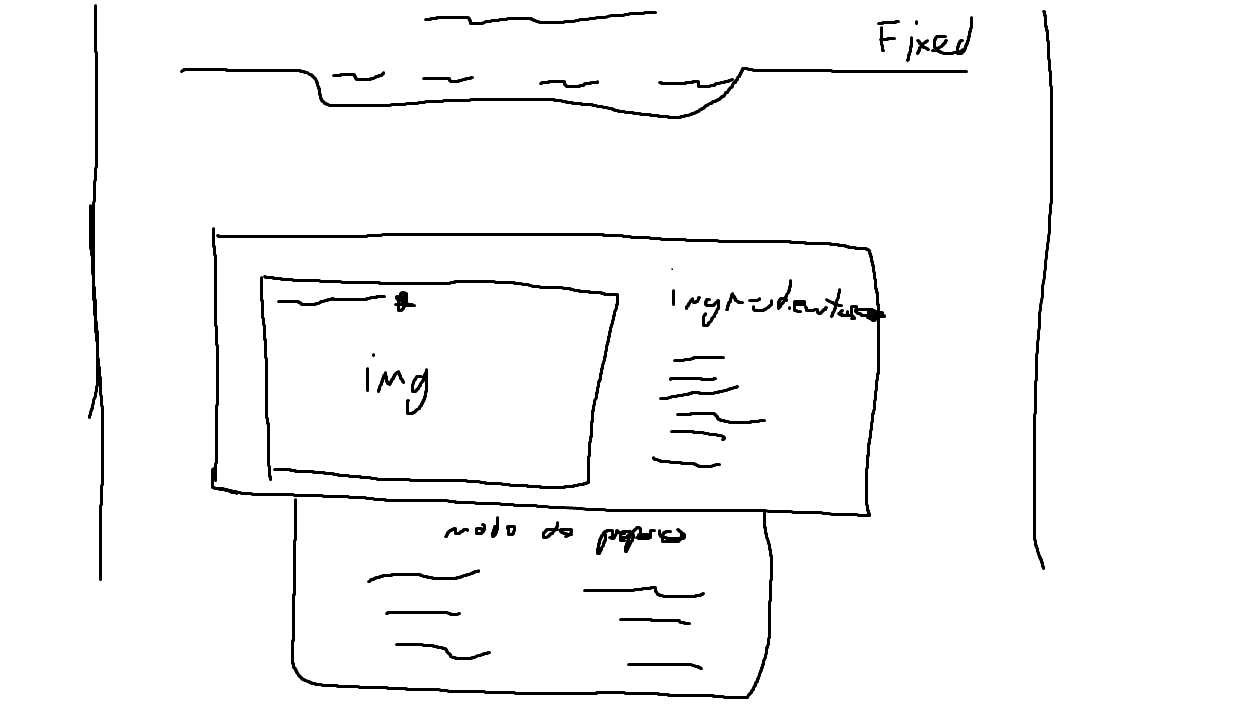 Fixed
ingredientes
img
modo de preparo